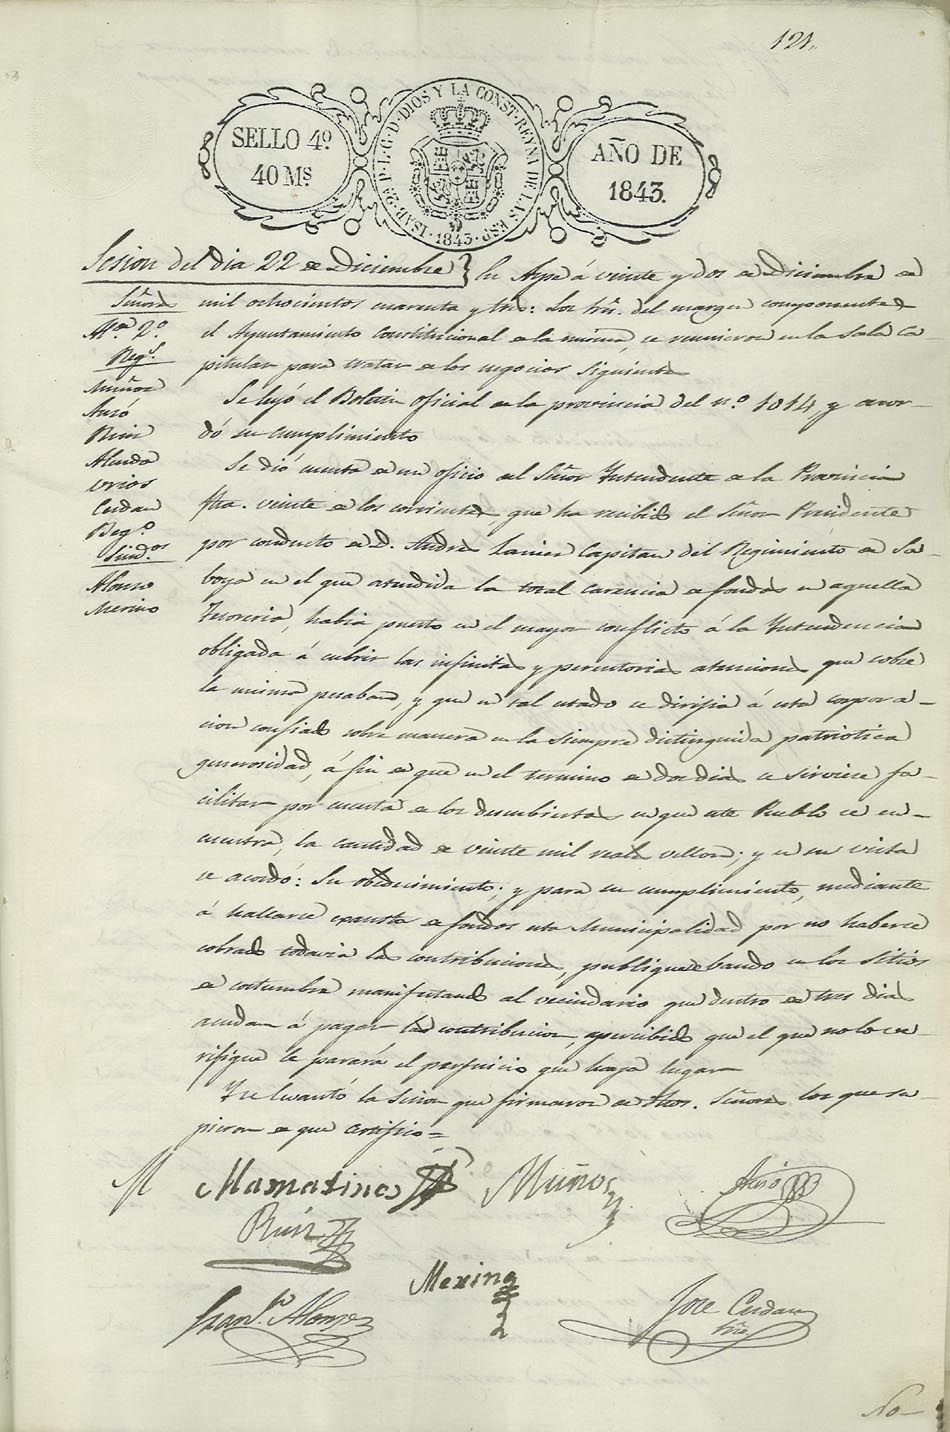 121.
SELLO 4º
40 Mˢ
ISAB. 2ª P. L. G. D. DIOS Y LA CONST. REYNA DE LAS ESP. 1843.
AÑO DE
1843.
Sesion del dia 22 de Diciembre } En Aspe á veinte y dos de Diciembre de
mil ochocientos cuarenta y tres: Los Sres. del margen componentes
el Ayuntamiento Constitucional de la misma, se reunieron en la Sala Ca-
pitular para tratar de los negocios siguientes
Señores
2º
Regs.
Muñoz
Ruiz
Cerdan
Sindos.
Alonso
Merino
Se leyó el Boletin oficial de la provincia del nº 1814, y acor-
dó su cumplimiento
Se dió cuenta de un oficio del Señor Yntendente de la Provincia
fha. veinte de los corrientes que ha recibido el Señor Presidente
por conducto de D. Andres Capitan del Regimiento de Sa-
boya en el que atendida la total carencia de fondos en aquella
Tesoreria, habia puesto en el mayor conflicto á la Yntendencia
obligada á cubrir las infinitas y perentorias atenciones que sobre
la misma pesaban, y que en tal estado se dirijia á esta corpora-
cion confiado sobre manera en la siempre distinguida patriotica
generosidad, á fin de que en el termino de dos dias se sirviese fa-
cilitar por cuenta de los descubiertos en que este Pueblo se en-
cuentra, la cantidad de veinte mil reales vellon; y en su vista
se acordó: Su obedecimiento; y para su cumplimiento, mediante
á hallarse exausta de fondos esta Municipalidad por no haberse
cobrado todavia las contribuciones, publiquese bando en los sitios
de costumbre manifestando al vecindario que dentro de tres dias
acudan á pagar las contribucion, apercibido que el que no lo ve-
rifique le parará el perjuicio que haya lugar
Y se levantó la Sesion que firmaron de dhos. Señores los que su-
pieron de que certifico =
M Mamatines Muñoz Auso
Ruiz
Merino
Franco. Alonso Jose Cerdan
Srio
No-